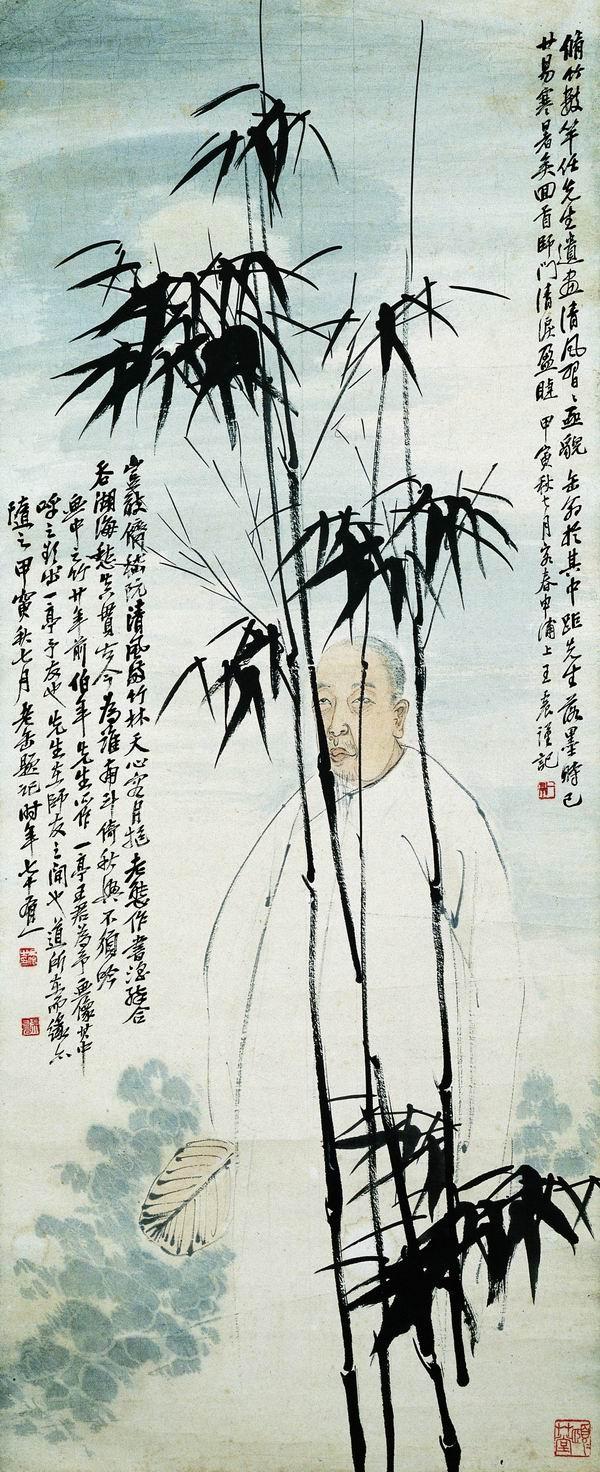 脩竹數竿任先生遺畫清風習習亟貌 缶翁於其中距先生落墨時已
廿易寒暑矣回首師門清淚盈睫 甲寅秋七月客春申浦上王震謹記
儕嵇阮清風留竹林天心月抱老態作書淫合
吞湖海愁貫古今為誰南斗倚秋興不須吟
畫中之竹廿年前伯年先生所作一亭王君為予畫像其中
呼之欲出一亭予友也 先生在師友之間也道所在而緣亦
隨之甲寅秋七月老缶題記時年七十有一